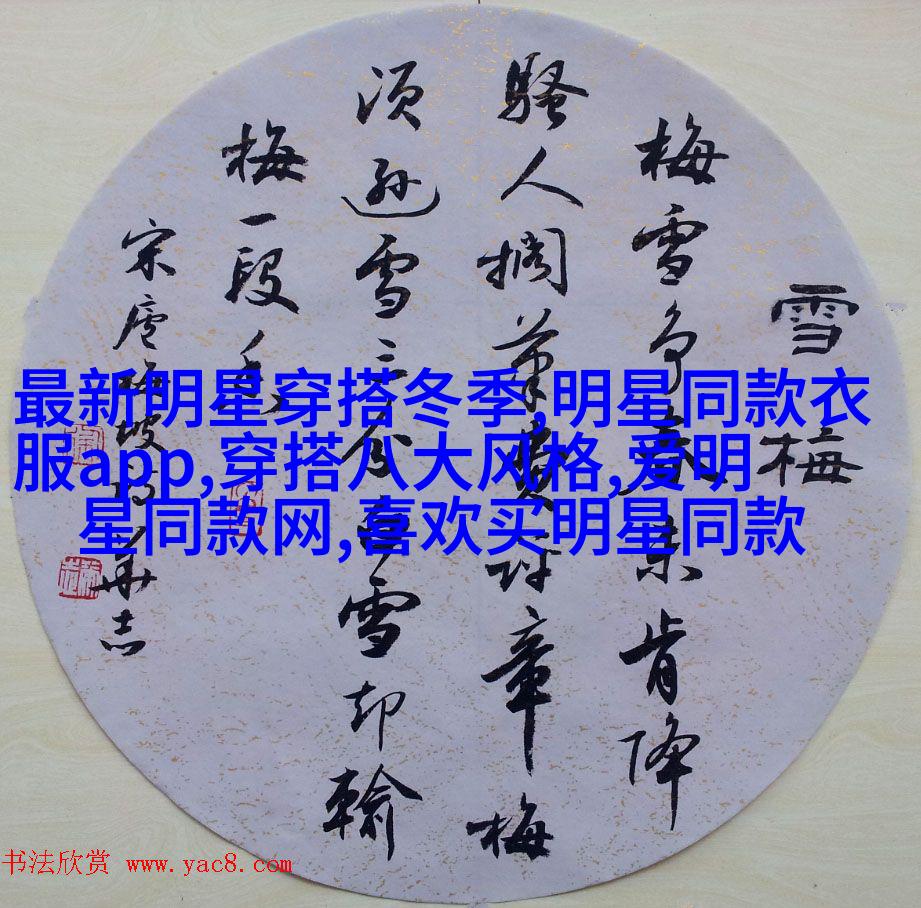 雪梅
梅雪争春未肯降
骚人搁筆費评章梅
须逊雪三分白雪却输
梅一段香
宋卢梅坡诗
最新明星穿搭冬季,明星同款衣
服app,穿搭八大风格,爱明
星同款网,喜欢买明星同款
书法欣赏 www.yac8.com